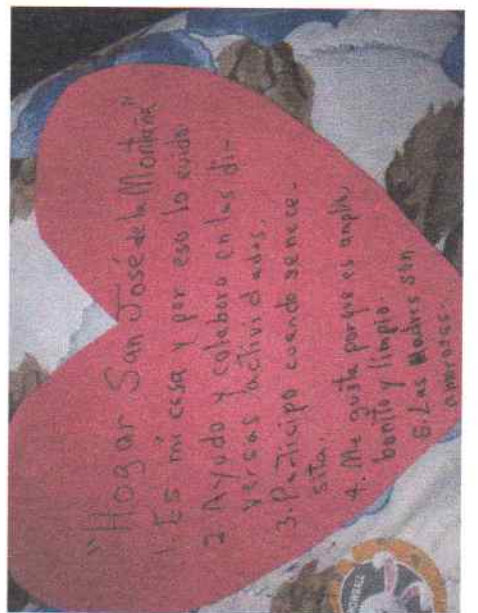 "Hogar San José de la Montaña"
1. Es mi casa y por eso lo cuido
2. Ayudo y colaboro en las di-
versas actividades.
3. Participo cuando se nece-
sita.
4. Me gusta porque es amplio,
bonito y limpio.
5. Las Madres son
amorosas.